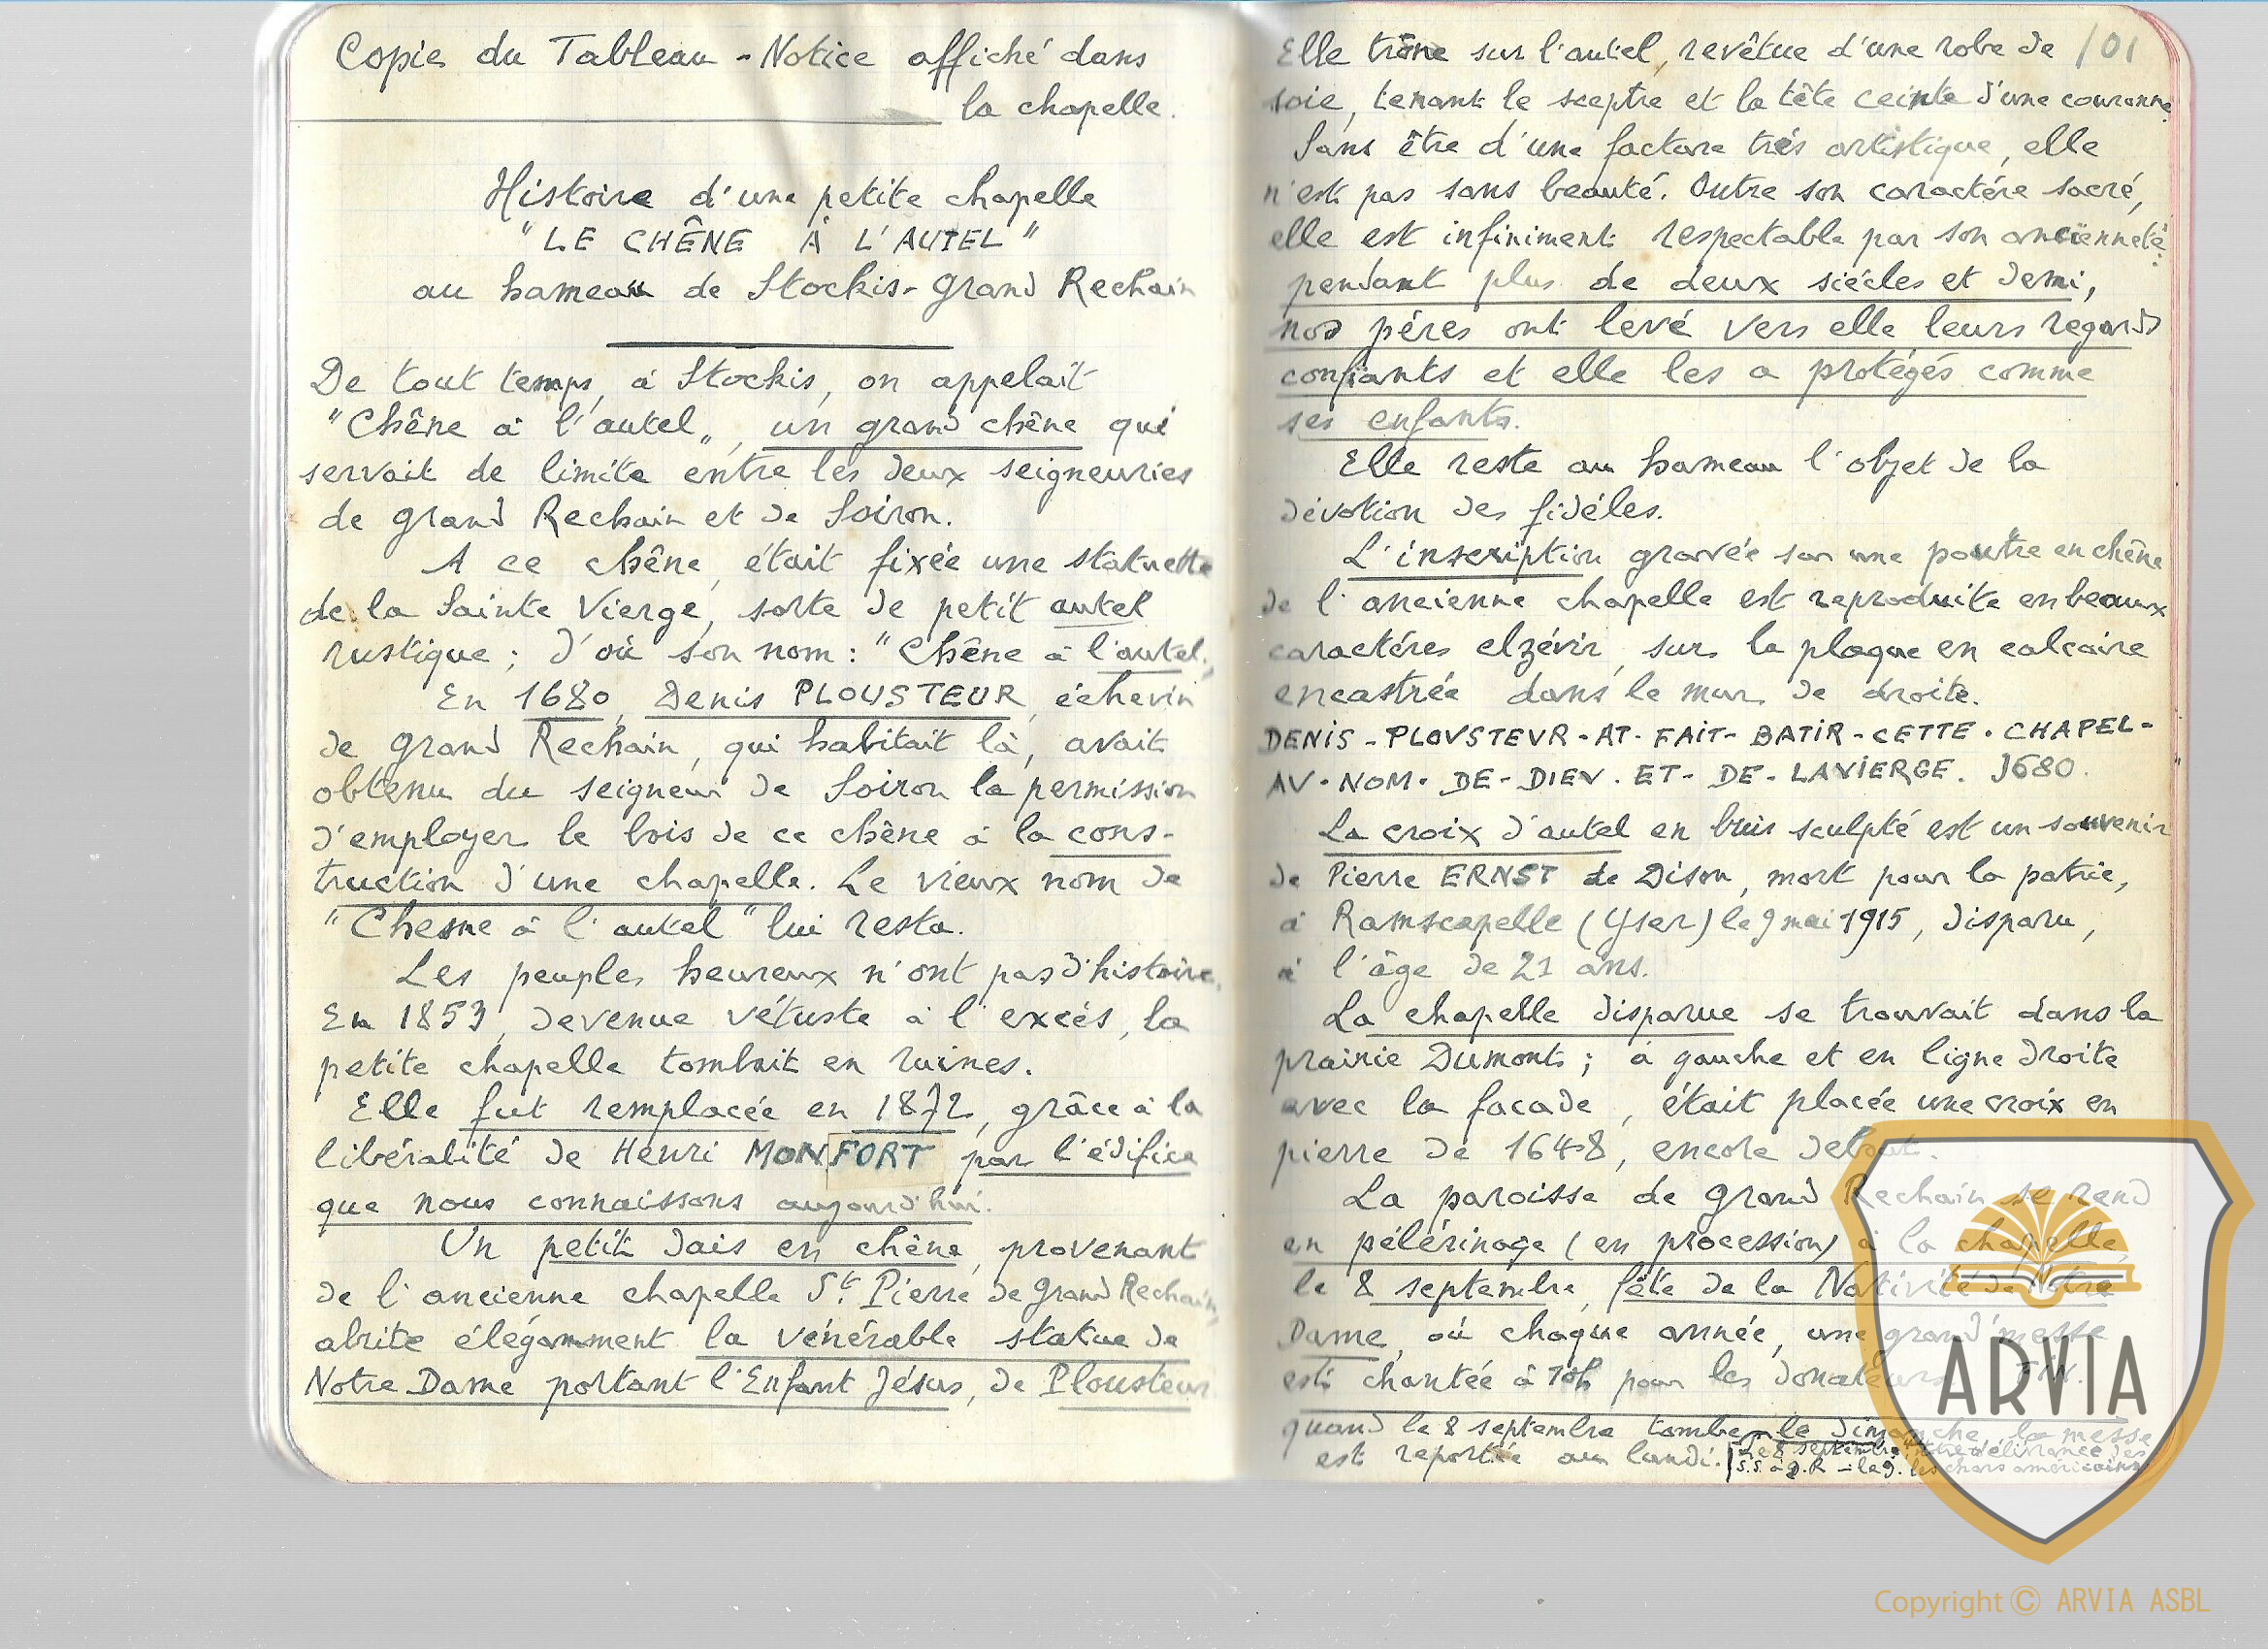 Copie du Tableau - Notice affiché dans
la chapelle.
Histoire d'une petite chapelle
"LE CHÊNE À L'AUTEL"
au hameau de Stockis - Grand Rechain
De tout temps, à Stockis, on appelait
"Chêne à l'autel", un grand chêne qui
servait de limite entre les deux seigneuries
de Grand Rechain et de Soiron.
A ce chêne, était fixée une statuette
de la Sainte Vierge, sorte de petit autel
rustique ; d'où son nom : "Chêne à l'autel"
En 1680, Denis PLOUSTEUR, échevin
de Grand Rechain, qui habitait là, avait
obtenu du seigneur de Soiron la permission
d'employer le bois de ce chêne à la cons-
truction d'une chapelle. Le vieux nom de
"Chesne à l'autel" lui resta.
Les peuples heureux n'ont pas d'histoire.
En 1853, devenue vétuste à l'excès, la
petite chapelle tombait en ruines.
Elle fut remplacée en 1872, grâce à la
libéralité de Henri MONFORT par l'édifice
que nous connaissons aujourd'hui.
Un petit dais en chêne, provenant
de l'ancienne chapelle St. Pierre de Grand Rechain,
abrite élégamment la vénérable statue de
Notre Dame portant l'Enfant Jésus, de Plousteur
Elle trône sur l'autel, revêtue d'une robe de 101
soie, tenant le sceptre et la tête ceinte d'une couronne.
Sans être d'une facture très artistique, elle
n'est pas sans beauté. Outre son caractère sacré,
elle est infiniment respectable par son ancienneté :
pendant plus de deux siècles et demi,
nos pères ont levé vers elle leurs regards
confiants et elle les a protégés comme
ses enfants.
Elle reste au hameau l'objet de la
dévotion des fidèles.
L'inscription gravée sur une poutre en chêne
de l'ancienne chapelle est reproduite en beaux
caractères elzévir, sur la plaque en calcaire
encastrée dans le mur de droite.
DENIS - PLOVSTEVR - AT - FAIT - BATIR - CETTE - CHAPEL -
AV - NOM - DE - DIEV - ET - DE - LAVIERGE. J680.
La croix d'autel en buis sculpté est un souvenir
de Pierre ERNST de Dison, mort pour la patrie,
à Ramscapelle (Yser) le 9 mai 1915, disparu,
à l'âge de 21 ans.
La chapelle disparue se trouvait dans la
prairie Dumont ; à gauche et en ligne droite
avec la façade, était placée une croix en
pierre de 1648, encore debout.
La paroisse de Grand Rechain se rend
en pélérinage (en procession) à la chapelle,
le 8 septembre, fête de la Nativité de Notre
Dame, où chaque année, une grand'messe
est chantée à 10h pour les donateurs.
quand le 8 septembre tombe le dimanche, la messe
est reportée au lundi. Le 8 septembre délivrance des
S.S. à G.R - le 9. les chars américains
ARVIA
Copyright © ARVIA ASBL